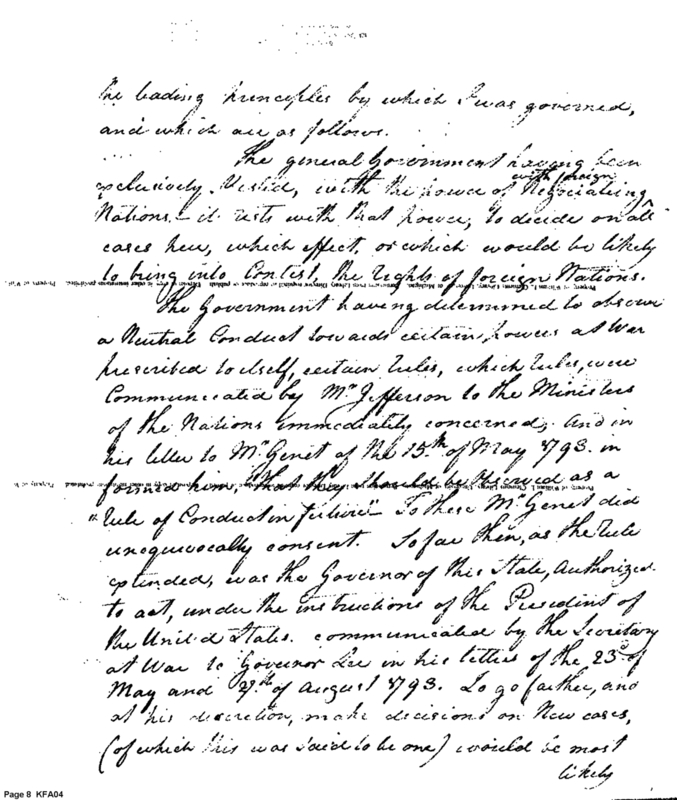 the leading principles by which I was governed,
and which are as follows.
The general Government having been
exclusively Vested, with the power of Negociating
with foreign
Nations - it rests with that power, to decide on all
cases here, which effect, or which would be likely
to bring into Contest, the rights of foreign Nations.
The Government having determined to observe
a Neutral Conduct towards certain powers at War
prescribed to itself, certain rules, which rules, were
Communicated by Mr Jefferson to the Ministers
of the Nations immediately concerned; and in
his letter to Mr Genet of the 15th of May 1793. in
formed him, that they should be observed as a
"rule of Conduct in future" To these Mr Genet did
unequivocally consent. So far then, as the rule
extended, was the Governor of this State, Authorized
to act, under the instructions of the President of
the United States. communicated by the Secretary
at War to Governor Lee in his letters of the 23d of
May and of August 1793. To go farther, and
at his discretion, make decisions on New cases,
(of which this was said to be one) would be most
likely
Page 8 KFA04